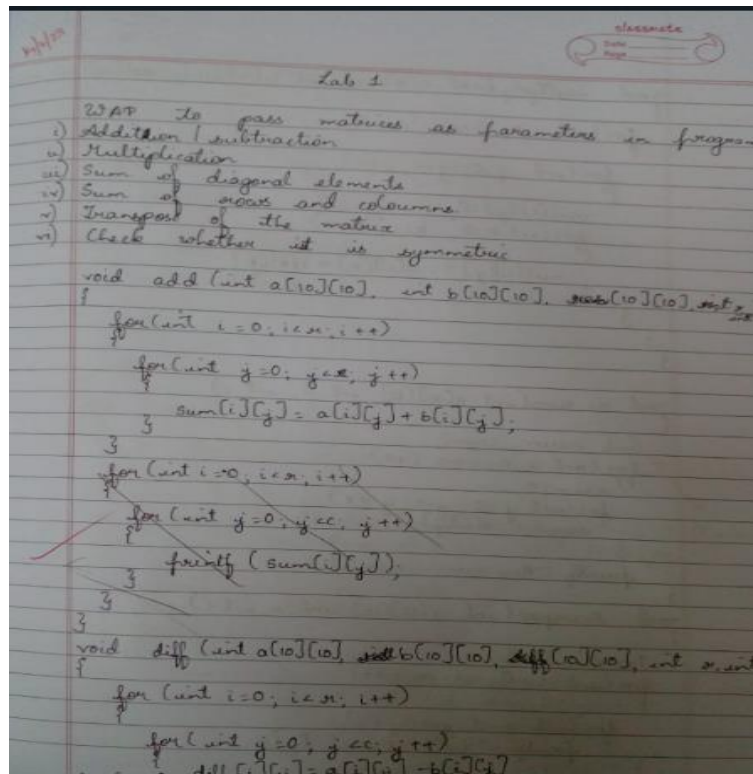 classmate
Date
Page
Lab 1
WAP to pass matrices as parameters in program
i) Addition / subtraction
ii) Multiplication
iii) Sum of diagonal elements
iv) Sum of rows and coloumns
v) Transpost of the matrix
vi) Check whether it is symmetric
void add (int a[10][10], int b[10][10], [10][10], int
{
for(int i=0; i<r; i++)
{
for(int j=0; j< ; j++)
{
sum[i][j] = a[i][j] + b[i][j];
}
}
for(int i=0; i<r; i++)
{
for(int j=0; j<c; j++)
{
printf (sum[i][j]);
}
}
}
void diff (int a[10][10], b[10][10], diff[10][10], int r, int
{
for (int i=0; i<r; i++)
{
for(int j=0; j<c; j++)
{
diff[i][j] = a[i][j] - b[i][j]